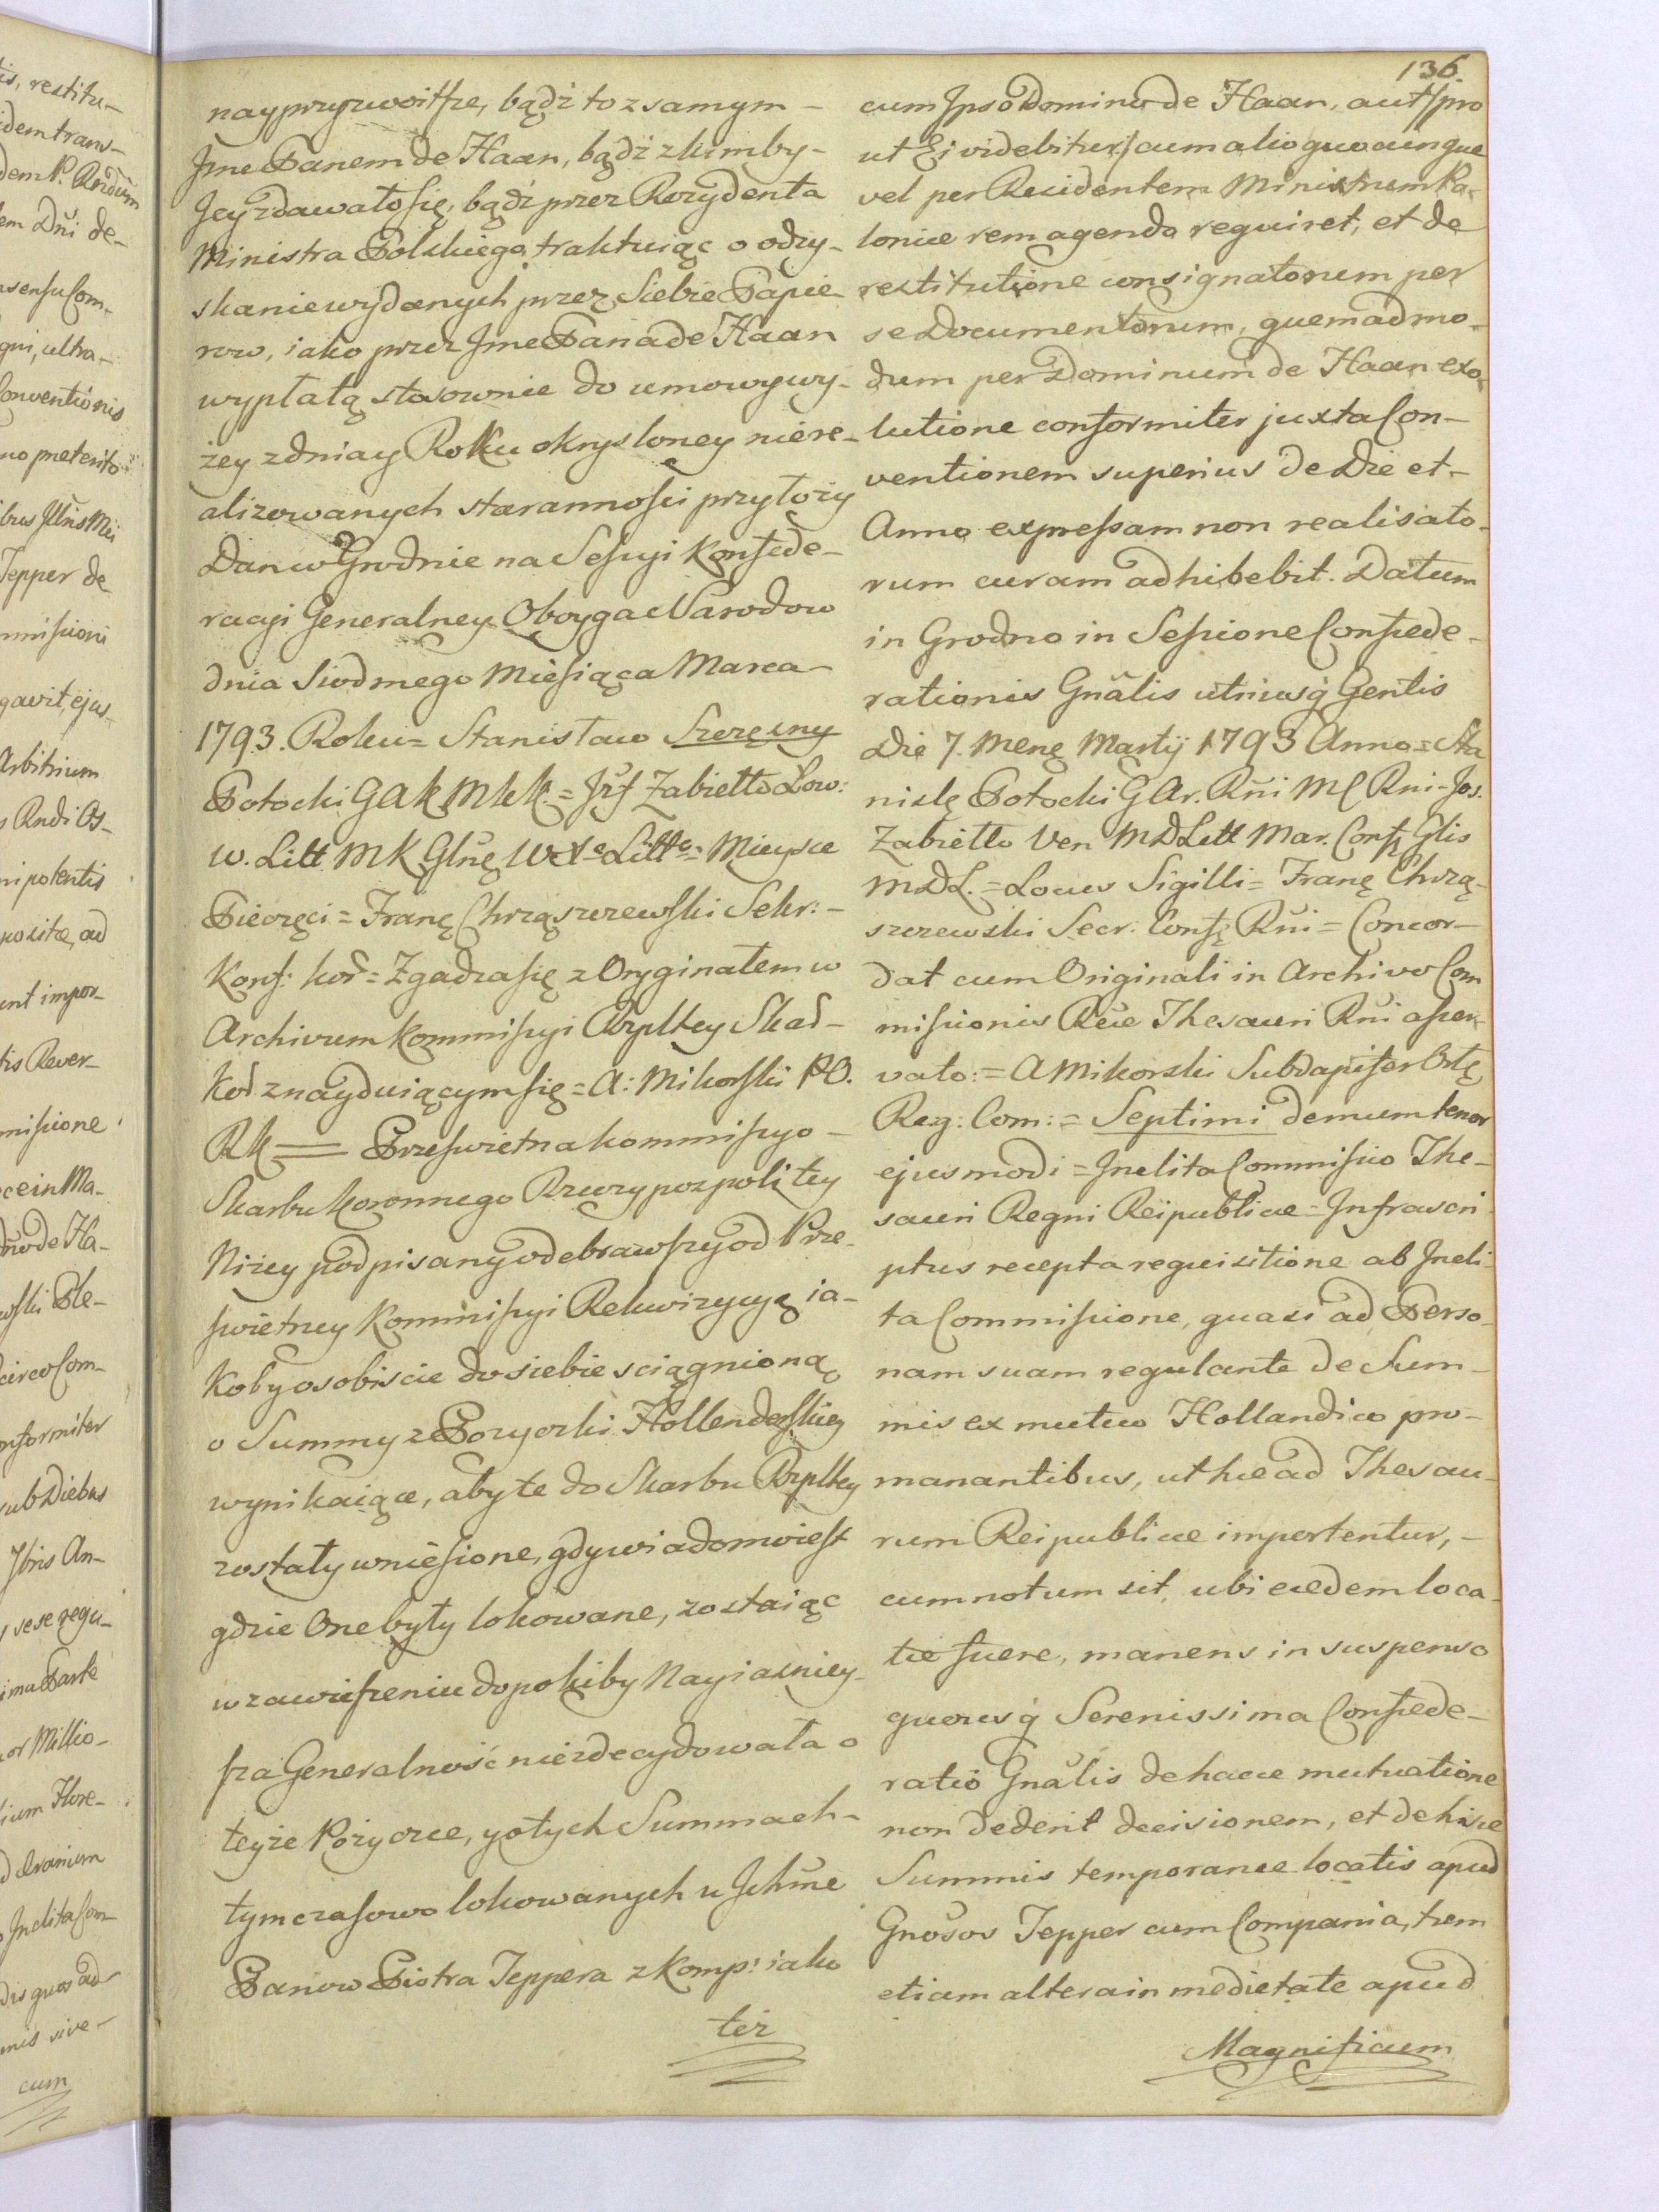 136.
nayprzyzwoitsze, bądź to z samym –
Jme Panem de Haan, bądź z kimby –
Jey zdawało się, bądź przez Rezydenta
Ministra Polskiego, traktuiąc o odzy-
skanie wydanych przez Siebie Papie-
row, iako przez Jme Pana de Haan
wypłatą stosownie do umowy wy-
żey z dnia y Roku okryśloney niere-
alizowanych staranności przyłoży
Dan w Grodnie na Sessyi Konfede-
racyi Generalney Oboyga Narodow
dnia Siodmego Miesiąca Marca –
1793. Roku = Stanisław Szczęsny
Potocki GAK MKK = Jzf Zabiełło Łow:
W. Litt MK Glnę W Xa Litto = Mieysce
Pieczęci = Franę Chrząszczewski Sekr: –
Konf: kor = Zgadza się z Oryginałem w
Archivum Kommissyi Rzpltey Skar –
Kor znayduiącym się = A: Mikorski PO.
RK == Prześwietna Kommissyo –
Skarbu Koronnego Rzeczypospolitey
Niżey podpisany odebrawszy od Prze-
świetney Kommissyi Rekwizycyą ia-
koby osobiście do siebie sciągnioną
o Summy z Pozyczki Hollenderskiey
wynikaiące, aby te do Skarbu Rzpltey
zostały wniesione, gdy wiadomo iest
gdzie One były lokowane, zostaiąc
w zawieszeniu dopokiby Nayiaśniey-
sza Generalność niezdecydowała o
teyże Pożyczce, y o tych Summach –
tymczasowo lokowanych u Jchme
Panow Piotra Teppera z Komp: iako
też
cum Ipso Domino de Haan, aut /pro
ut Ei videbitur/ cum alio quocunque
vel per Residentem Ministrum Po-
loniæ rem agendo requiret, et de
restitutione consignatorum per
se Documentorum, quemadmo-
dum per Dominum de Haan exo-
lutione conformiter juxta Con-
ventionem superius de Die et –
Anno expressam non realisato-
rum curam adhibebit. Datum
in Grodno in Sessione Confœde-
rationis Gnãlis utriusq Gentis
Die 7. Menę Martÿ 1793 Anno = Sta
nislę Potocki GAr. Rni MC Rni – Jos.
Zabiełło Ven MDLitt Mar. Confę Glis
MDL. = Locus Sigilli = Franę Chrzą-
szczewski Secr. Confę Rni = Concor-
dat cum Originali in Archivo Com
missionis Reæ Thesauri Rni asser-
vato: = A Mikorski Subdapifer Ostę
Reg: Com: = Septimi demum tenor
ejusmodi = Inclita Commissio The-
sauri Regni Reipublicæ = Infrascri
ptus recepta requisitione ab Incli-
ta Commissione, quasi ad Perso-
nam suam regulante de Sum-
mis ex mutuo Hollandico pro-
manantibus, ut hæ ad Thesau-
rum Reipublicæ importentur, –
cum notum sit, ubi eædem loca-
tæ fuere, manens in suspenso
quousq Serenissima Confœde-
ratio Gnãlis de hacce mutuatione
non dederit decisionem, et de hisce
Summis temporanee locatis apud
Gnosos Tepper cum Compania, tum
etiam altera in medietate apud
Magnificum